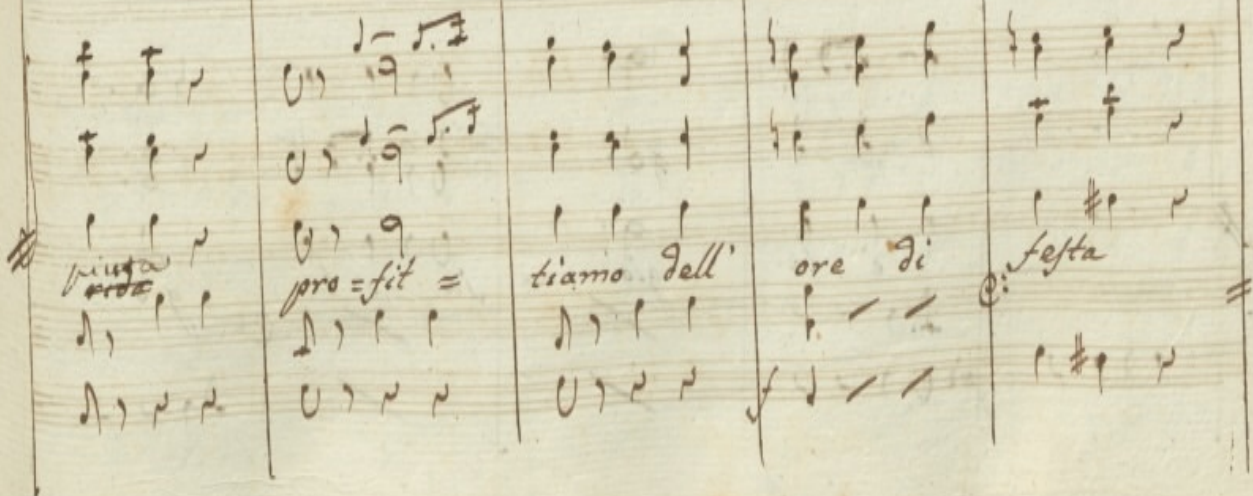 pro=fit = tiamo dell' ore di festa
f